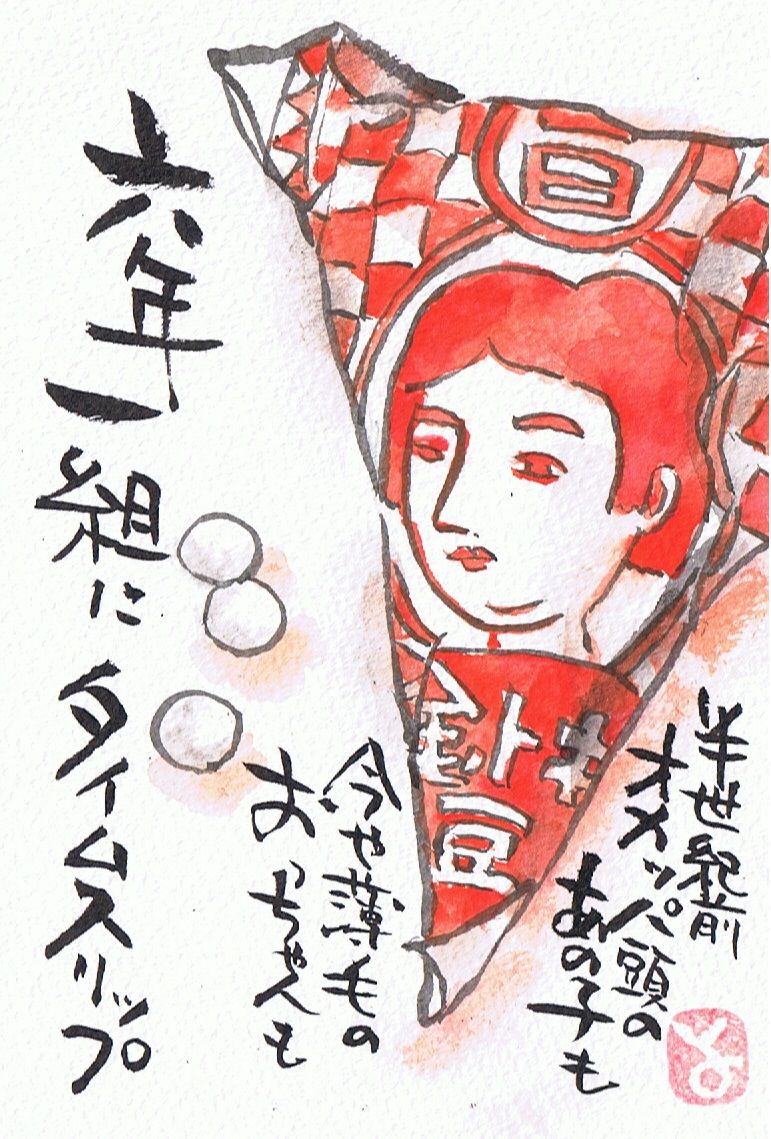 日
豆
半世紀前
オカッパ頭の
あの子も
今や薄毛の
おっちゃんも
六年一組に タイムスリップ